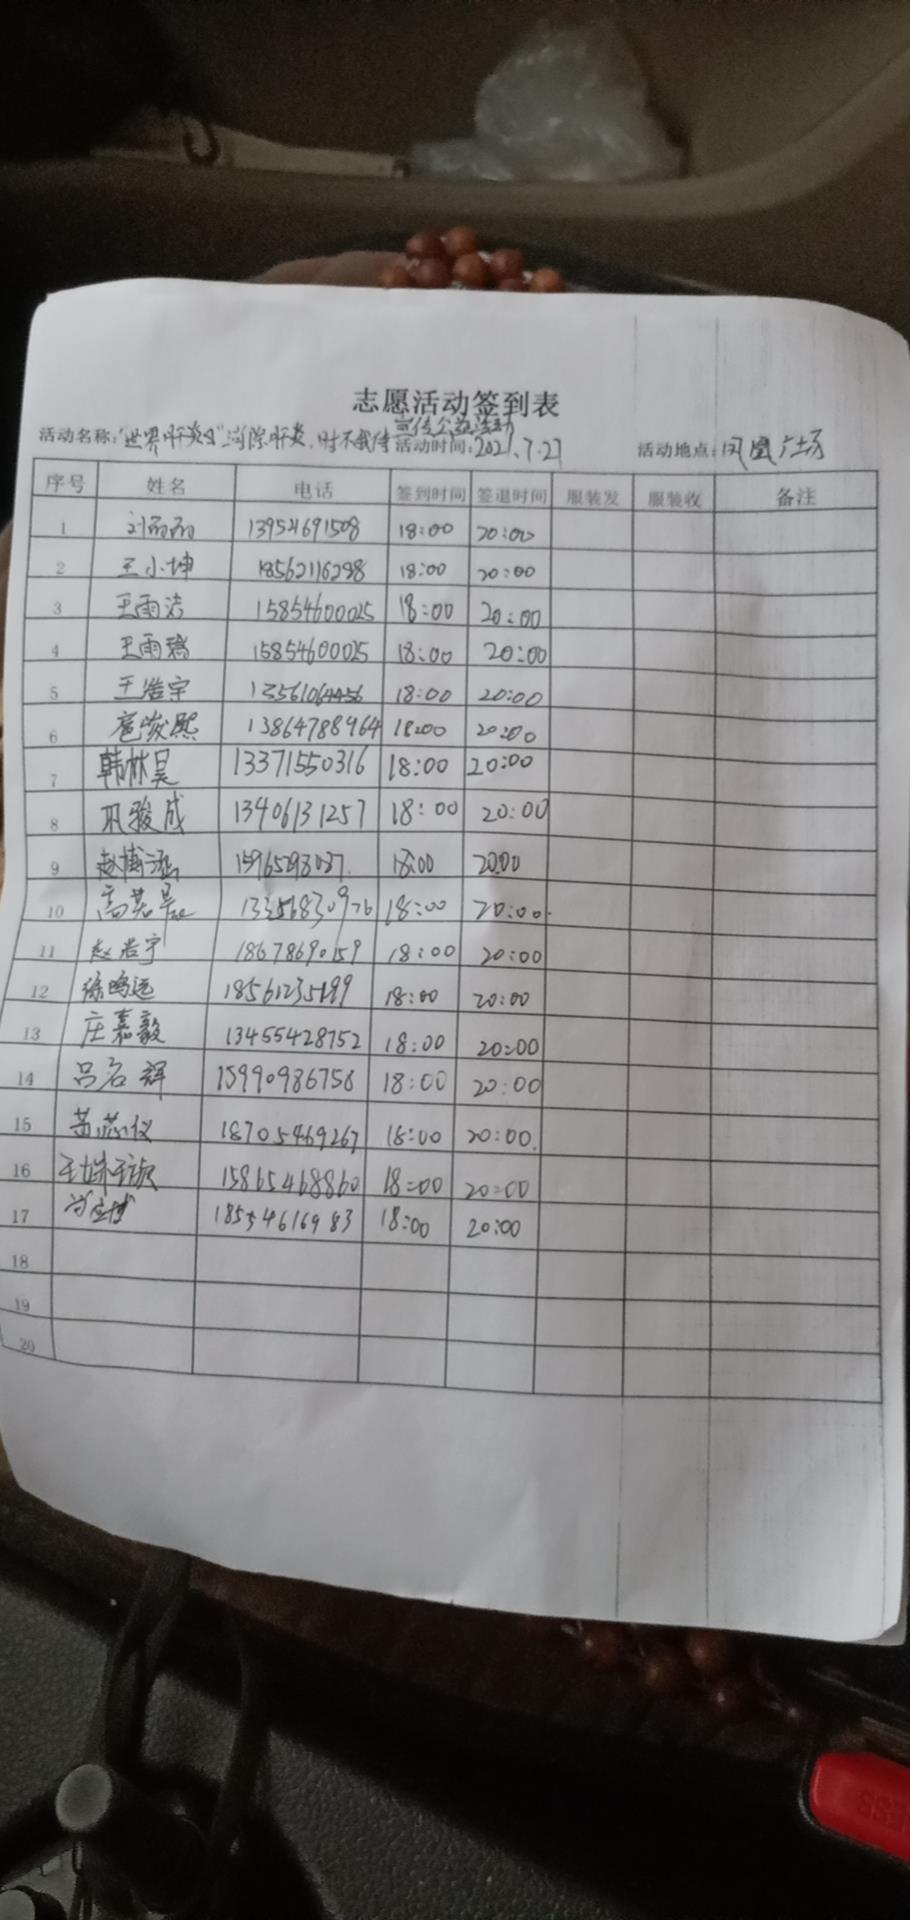 志愿活动签到表
宣传公益活动
活动名称："世界肝炎日"消除肝炎，时不我待 活动时间：2021.7.27 活动地点：凤凰广场
序号 姓名 电话 签到时间 签退时间 服装发 服装收 备注
1 刘丽丽 13954691508 18:00 20:00
2 王小坤 18562116298 18:00 20:00
3 王雨洁 15854600025 18:00 20:00
4 王雨 15854600025 18:00 20:00
5 王浩宇 18:00 20:00
6 扈峻熙 13864788964 18:00 20:00
7 韩林昊 13371550316 18:00 20:00
8 巩骏成 13406131257 18:00 20:00
9 赵博涵 18:00 20:00
10 18:00 20:00
11 赵浩宇 18678690159 18:00 20:00
12 徐鸣远 18:00 20:00
13 庄嘉毅 13455428752 18:00 20:00
14 吕名辉 15990986756 18:00 20:00
15 18705469267 18:00 20:00
16 15865468860 18:00 20:00
17 18554616983 18:00 20:00
18
19
20